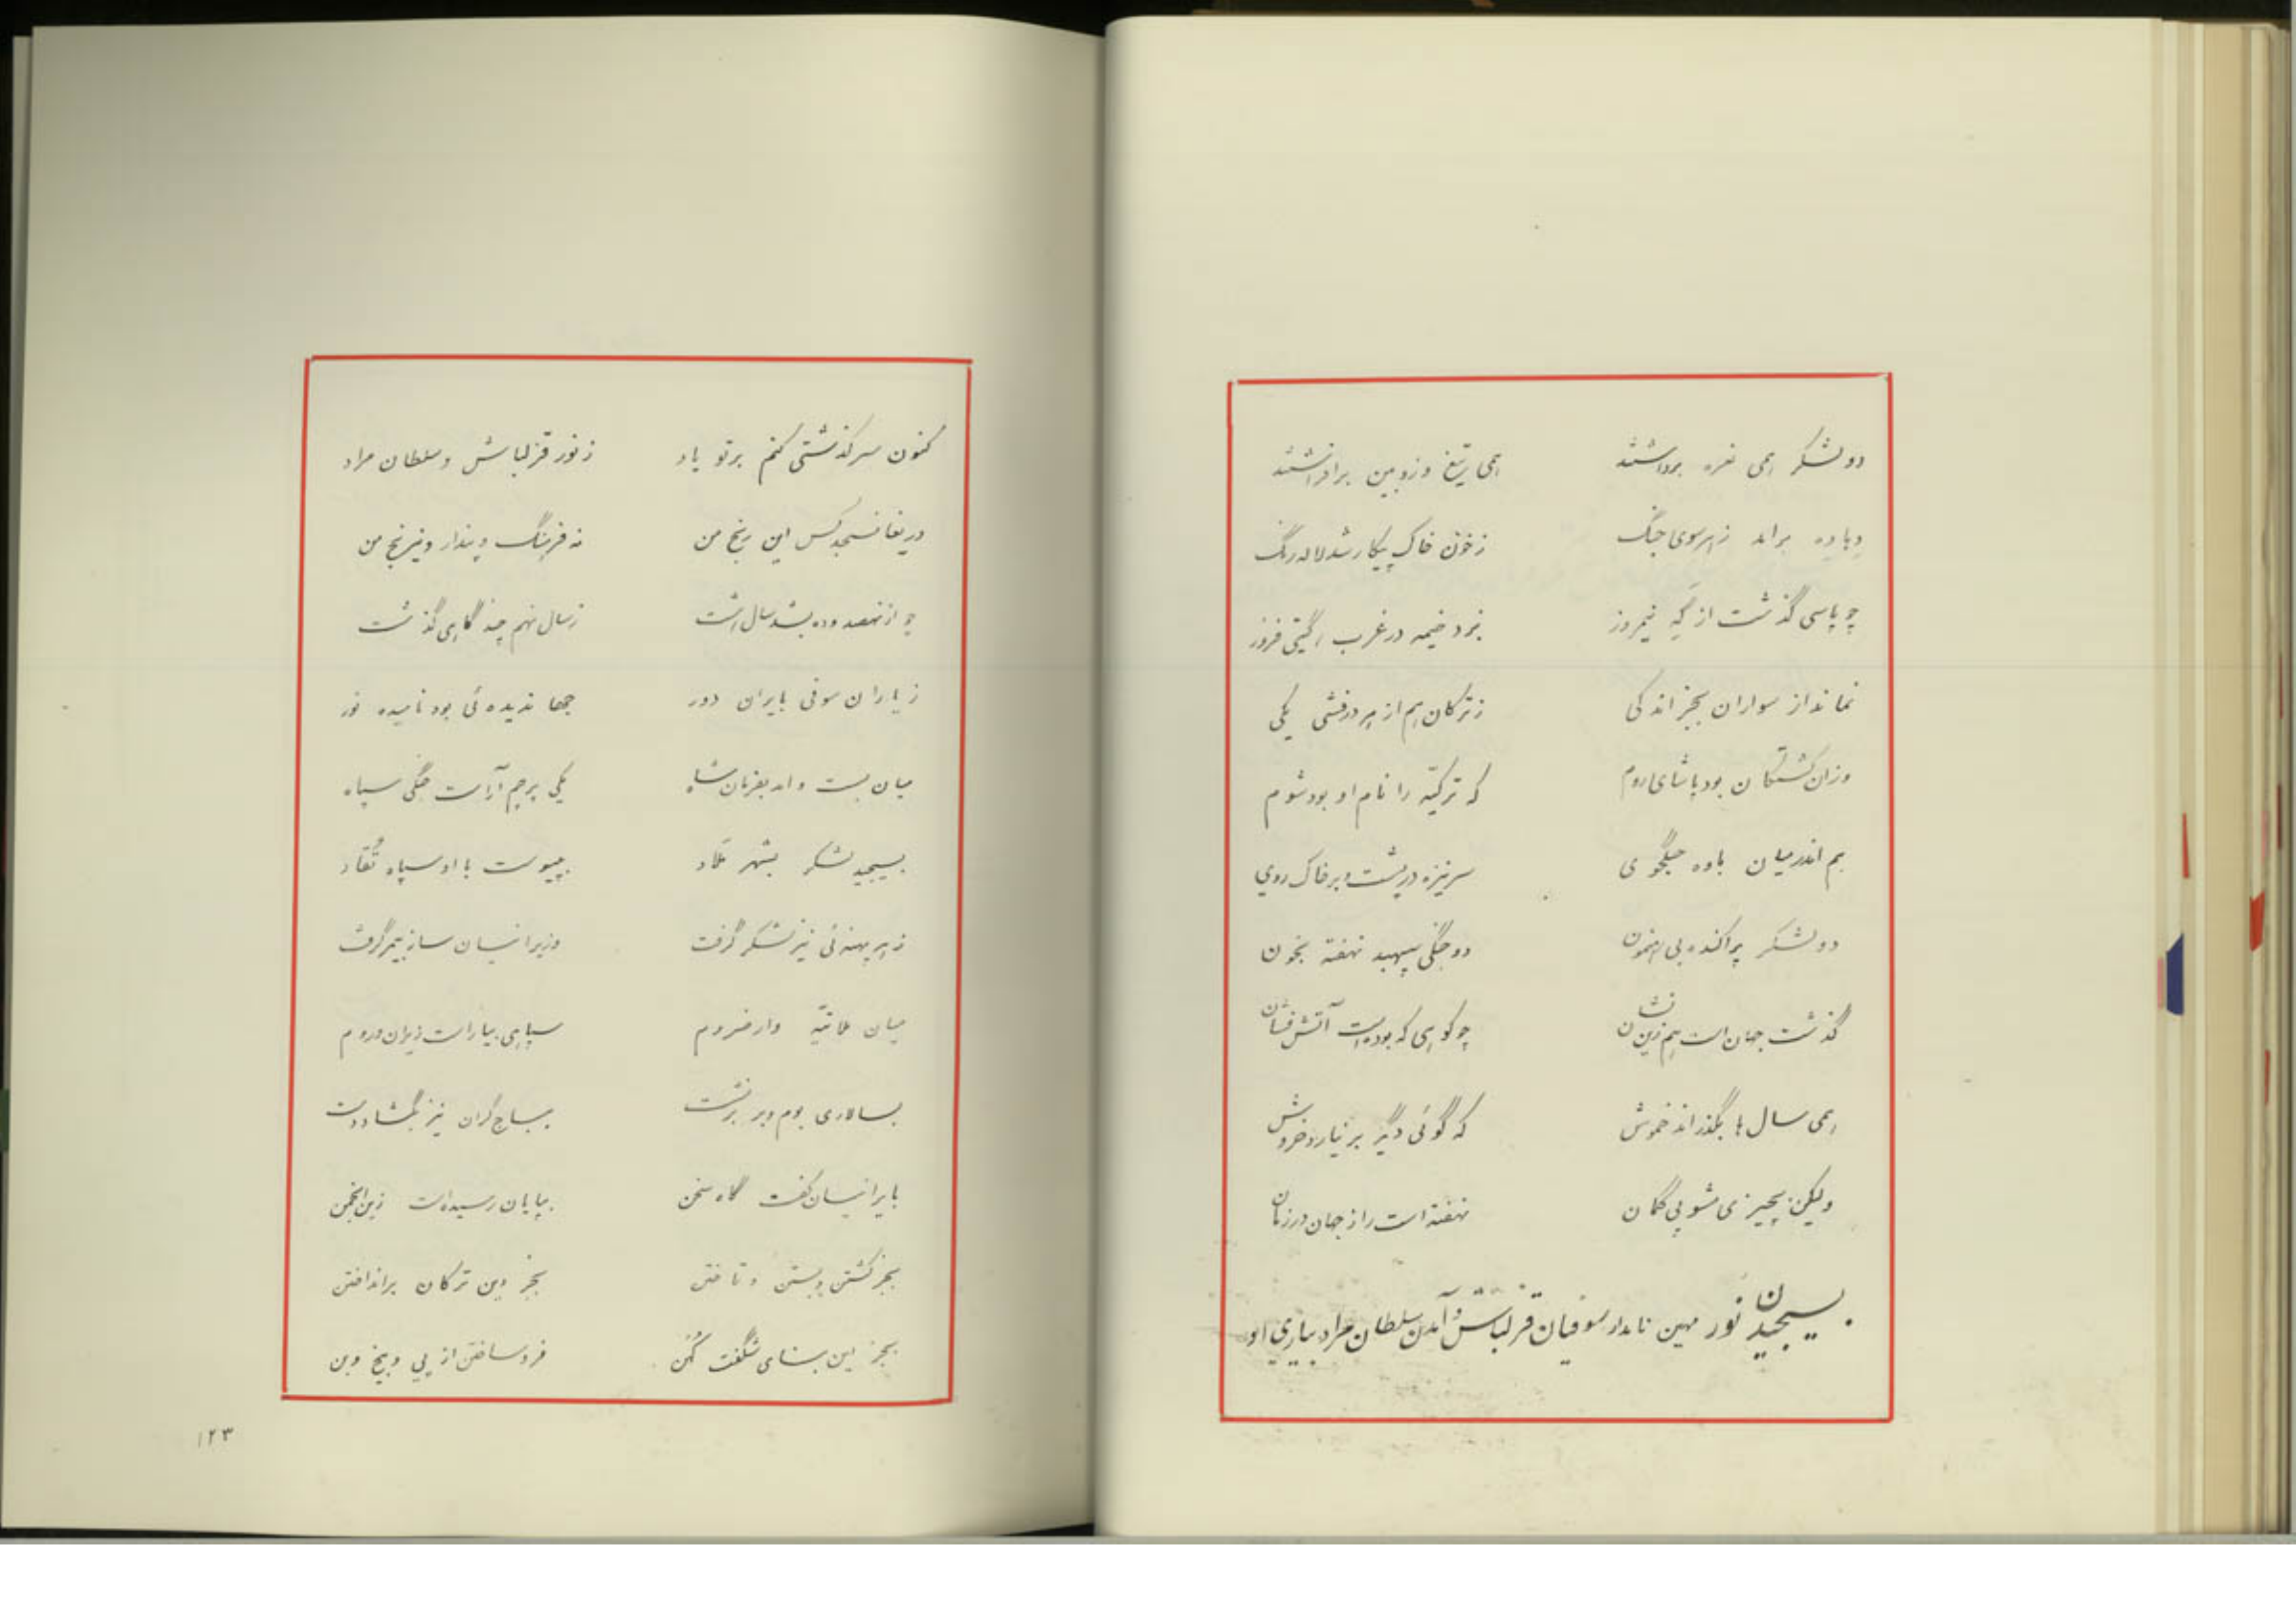 دو لشکر همی نعره برداشتند همی تیغ و زوبین برافراشتند
دباده براند ز هر سوی جنگ ز خون خاک پیکار شد لاله رنگ
چو پاسی گذشت از گه نیمروز بزد خیمه در غرب گیتی فروز
نماند از سواران بجز اندکی ز ترکان هم از هر درفشی یکی
وزان کشتگان بود پاشای روم که ترکیّه را نام او بود شوم
هم اندر میان باده جنگجوی سر نیزه در پشت و بر خاک روی
دو لشکر پراکنده بی رهنمون دو جنگی سپهبد نهفته بخون
گذشت جهان است هم زین نشان چو کوهی که بوده است آتش فشان
همی سال ها بگذراند خموش که گوئی دیگر بر نیارد خروش
ولیکن بچیزی مشو بی گمان نهفته است راز جهان در زمان
بسیجیدن نور مهین نامدار صوفیان قزلباش و آمدن سلطان مراد بیاری او
کنون سرگذشتی کنم بر تو یاد ز نور قزلباش و سلطان مراد
دریغا نسنجد کس این رنج من نه فرهنگ و پندار و نیرنج من
چو از نهصد و ده بشد سال هشت ز سال نهم چند گاهی گذشت
ز یاران صوفی بایران دور جهاندیده ئی بود نامیده نور
میان بست و امد بفرمان شاه یکی پرچم آراست جنگی سپاه
بسیجید لشکر بشهر بپیوست با او سپاه تُقاد
ز هر پهنه ئی نیز لشکر گرفت وز ایرانیان ساز گرفت
میان ملاتیّه و ارضروم سپاهی بیاراست ز ایران و روم
بسالاری بوم و بر برنشست بباج گران نیز بگشاد دست
بایرانیان گفت گاه سخن بپایان رسیده است زین انجمن
بجز کشتن و بستن و تاختن بجز دین ترکان براندافتن
بجز این بنای شگفت کُهن فرو ساختن از پی و بیخ و بن
۱۲۳